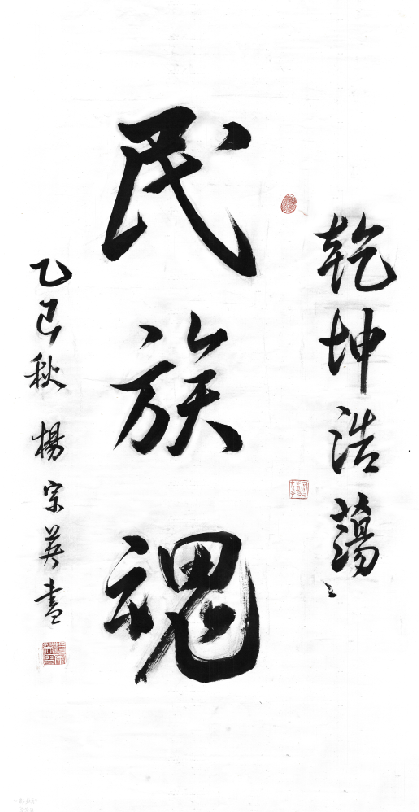 乾坤浩蕩〻
民族魂
乙巳秋 楊宗英書